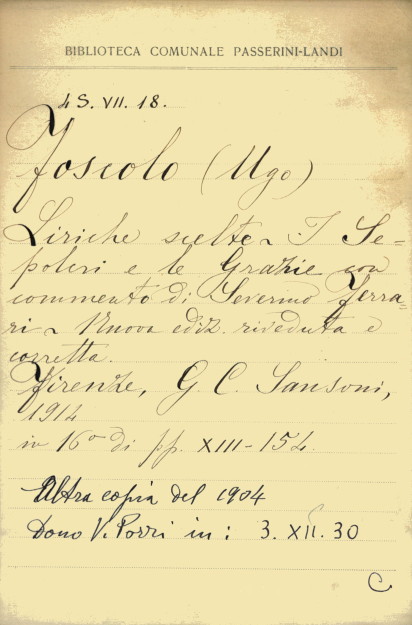 BIBLIOTECA COMUNALE PASSERINI-LANDI
4 S. VII. 18.
Foscolo (Ugo)
Liriche scelte ~ I Se-
polcri e le Grazie con
commento di Severino Ferra-
ri ~ Nuova ediz. riveduta e
corretta.
Firenze, G. C. Sansoni,
1914
in 16° di pp. XIII-154
Altra copia del 1904
Dono V. Porri in: 3. XII. 30
C